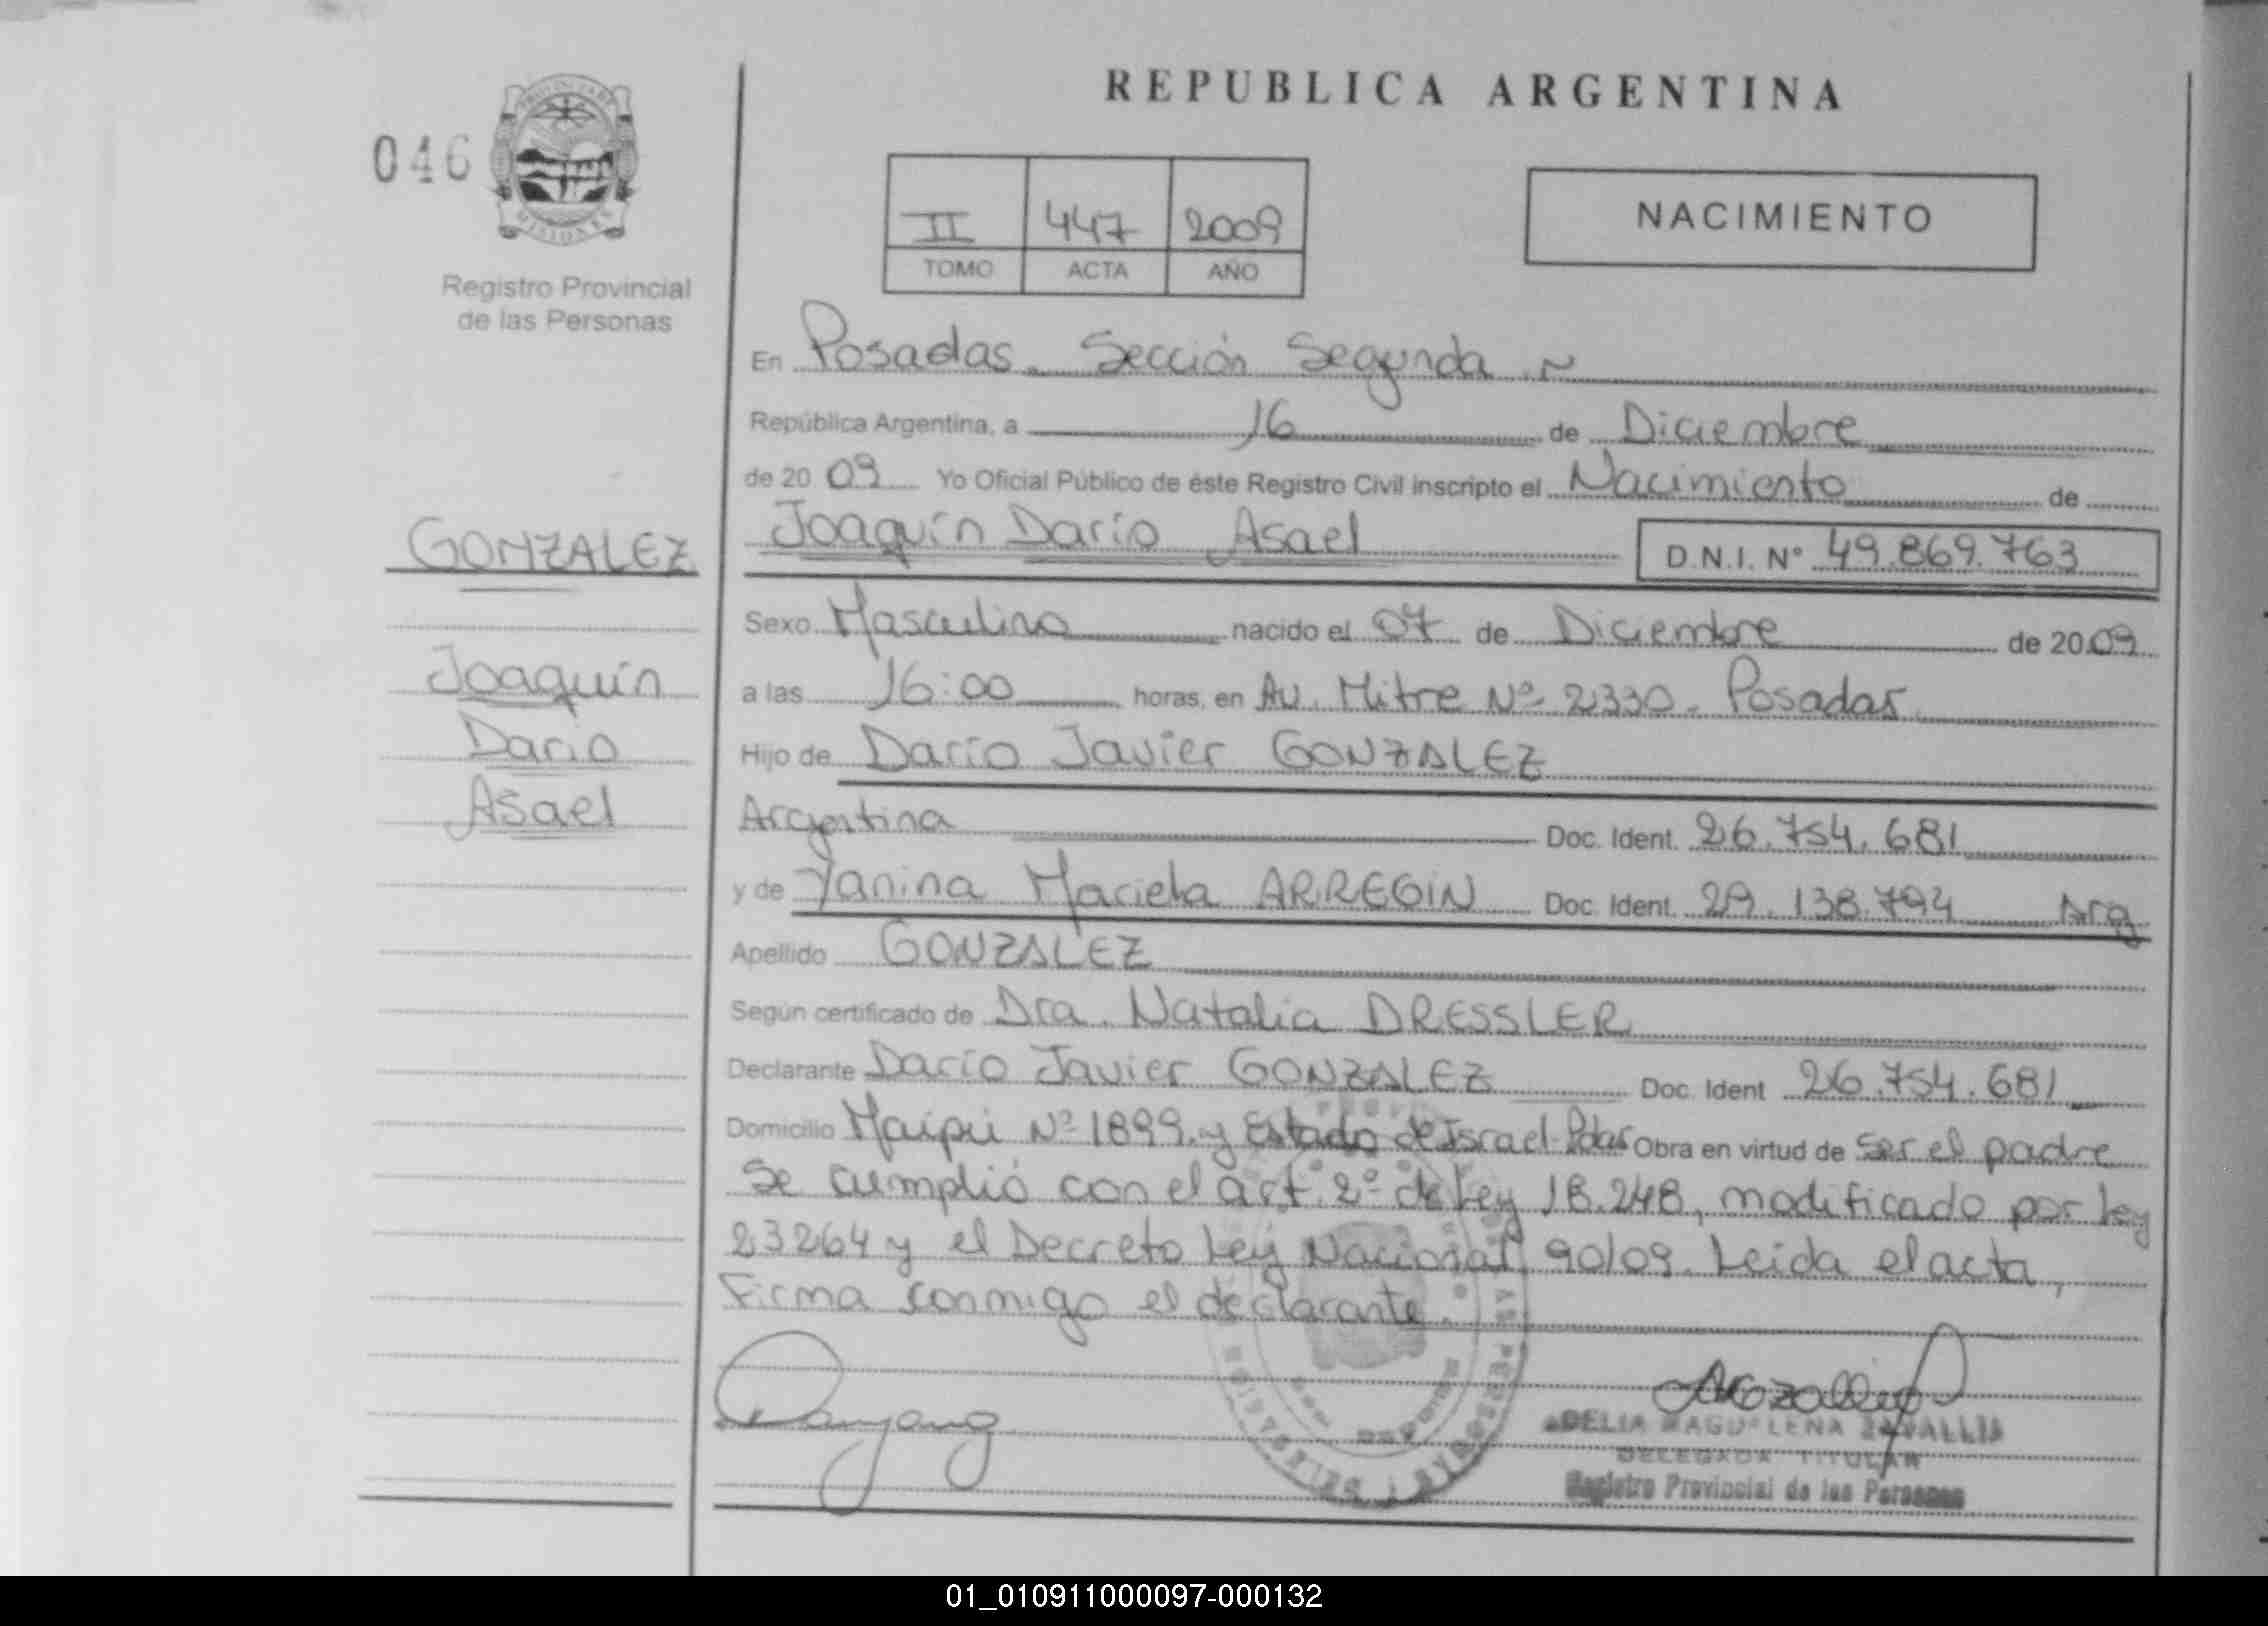 REPUBLICA ARGENTINA
046
PROVINCIA DE
MISIONES
Registro Provincial
de las Personas
II 447 2009
TOMO ACTA AÑO
NACIMIENTO
En Posadas. Sección Segunda. ~
República Argentina, a 16 de Diciembre
de 20 09 Yo Oficial Público de éste Registro Civil inscripto el Nacimiento de
GONZALEZ
Joaquín Darío Asael D.N.I. N° 49.869.763
Sexo Masculino nacido el 07 de Diciembre de 2009
Joaquín
a las 16:00 horas, en Av. Mitre Nº 2330. Posadas.
Dario
Hijo de Darío Javier GONZALEZ
Asael
Argentina Doc. Ident. 26.754.681
y de Yanina Mariela ARREGIN Doc. Ident. 29.138.794 Arg
Apellido GONZALEZ
Según certificado de Dra. Natalia DRESSLER
Declarante Darío Javier GONZALEZ Doc. Ident 26.754.681
Domicilio Maipú Nº 1899. y Estado de Israel- Pdas Obra en virtud de ser el padre
Se cumplió con el art. 2º de Ley 18.248, modificado por Ley
23264 y el Decreto Ley Nacional 90/09. Leida el acta,
Firma conmigo el declarante.
DELIA MAGDALENA ZAVALLIS
DELEGADA TITULAR
Registro Provincial de las Personas
01_010911000097-000132